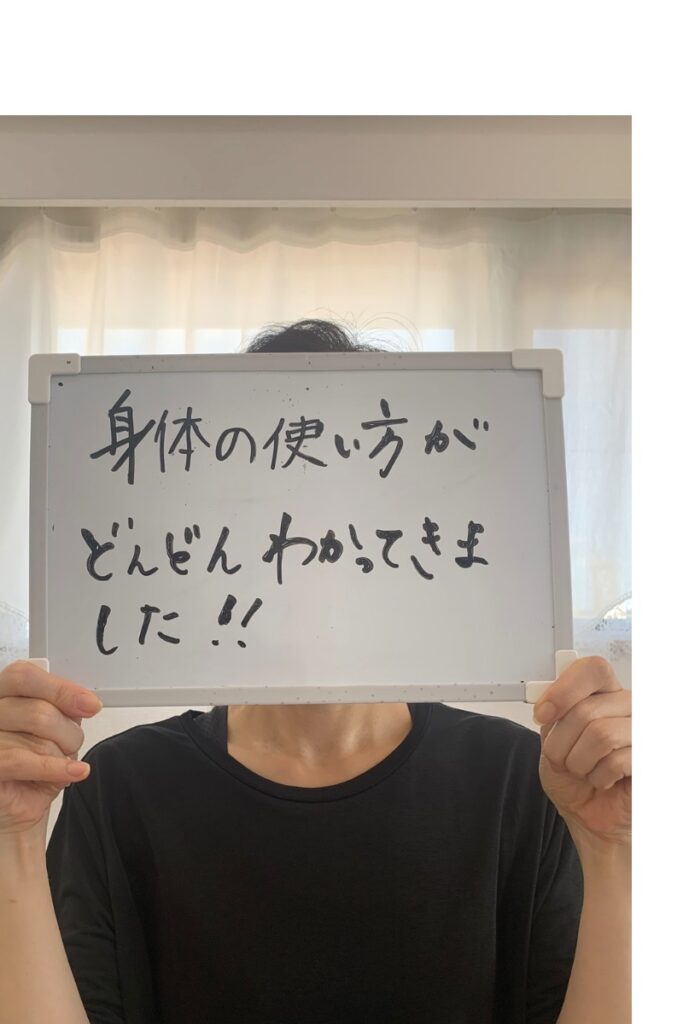 身体の使い方が
どんどんわかってきま
した!!